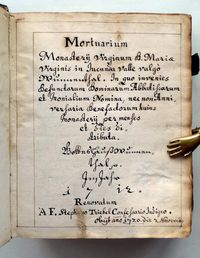 Mortuarium
Monasterij Virginum B. Maria
Virginis in Jucunda Valle vulgo
Wunnensal. In quo invenies
Defunctorum Dominarum Abbatissarum
et Monialium Nomina, nec non Anni
versaria Benefactorum huius
Monasterij per menses
et dies di,
stributa.
Jahr
1712.
Renovatum
A F. Stephano Confessario Indigno
obijt anno 1720. die 2